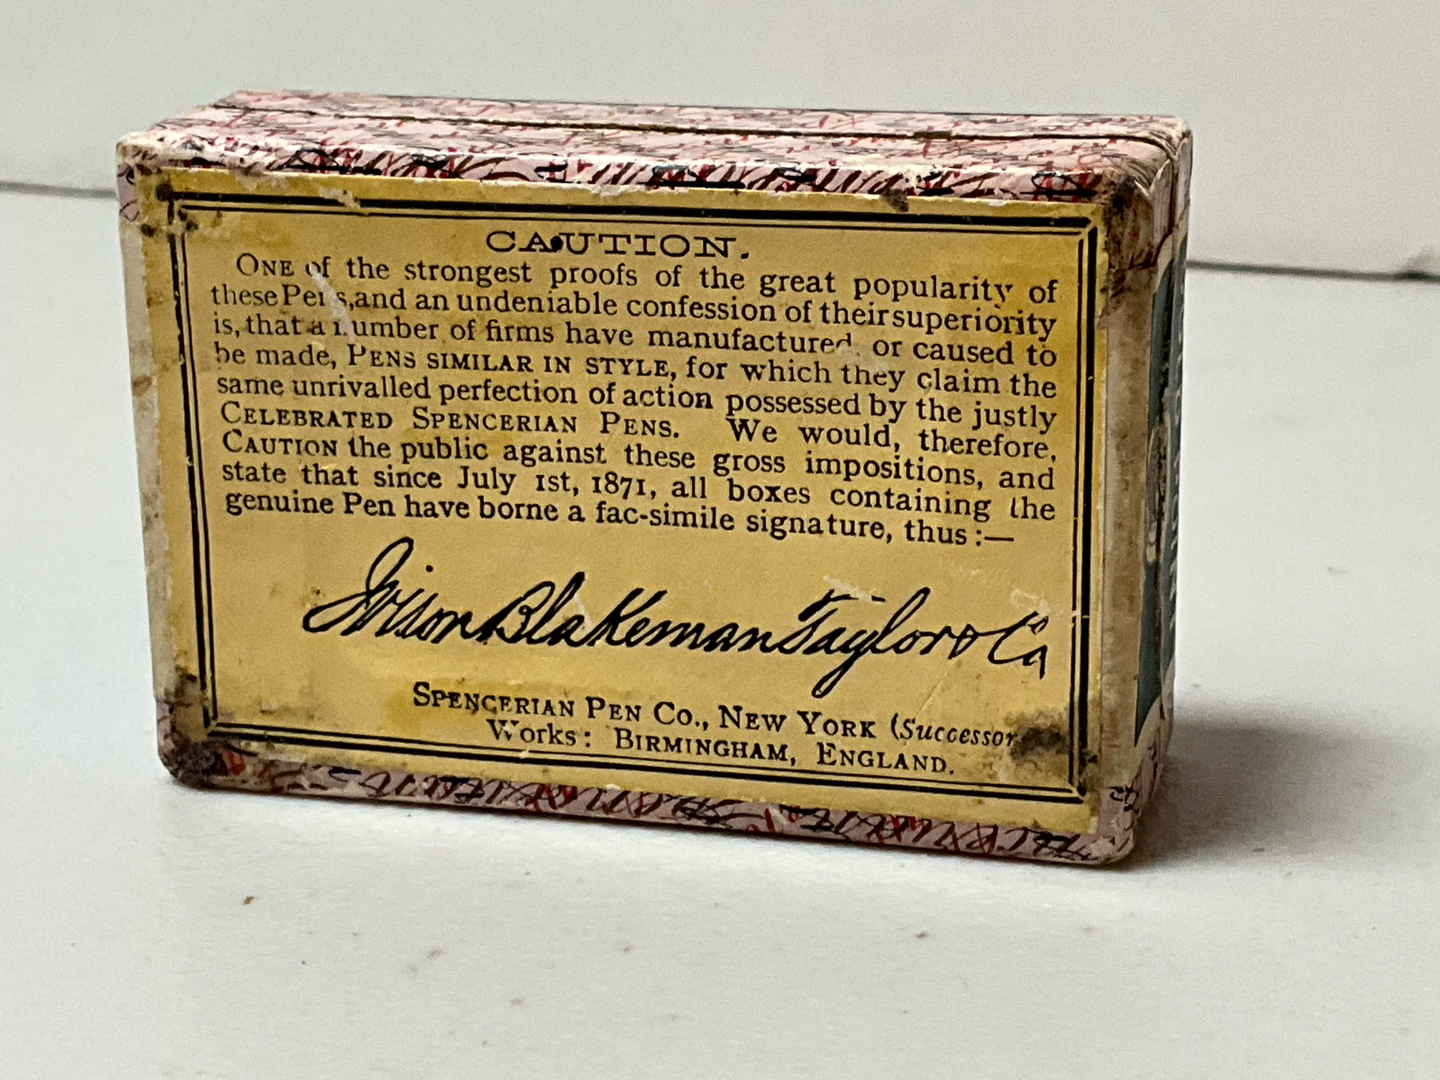 CAUTION.
ONE of the strongest proofs of the great popularity of
these Pens, and an undeniable confession of their superiority
is, that a number of firms have manufactured, or caused to
be made, PENS SIMILAR IN STYLE, for which they claim the
same unrivalled perfection of action possessed by the justly
CELEBRATED SPENCERIAN PENS. We would, therefore,
CAUTION the public against these gross impositions, and
state that since July 1st, 1871, all boxes containing the
genuine Pen have borne a fac-simile signature, thus :—
Ivison Blakeman Taylor & Co
SPENCERIAN PEN CO., NEW YORK (Successor
Works: BIRMINGHAM, ENGLAND.